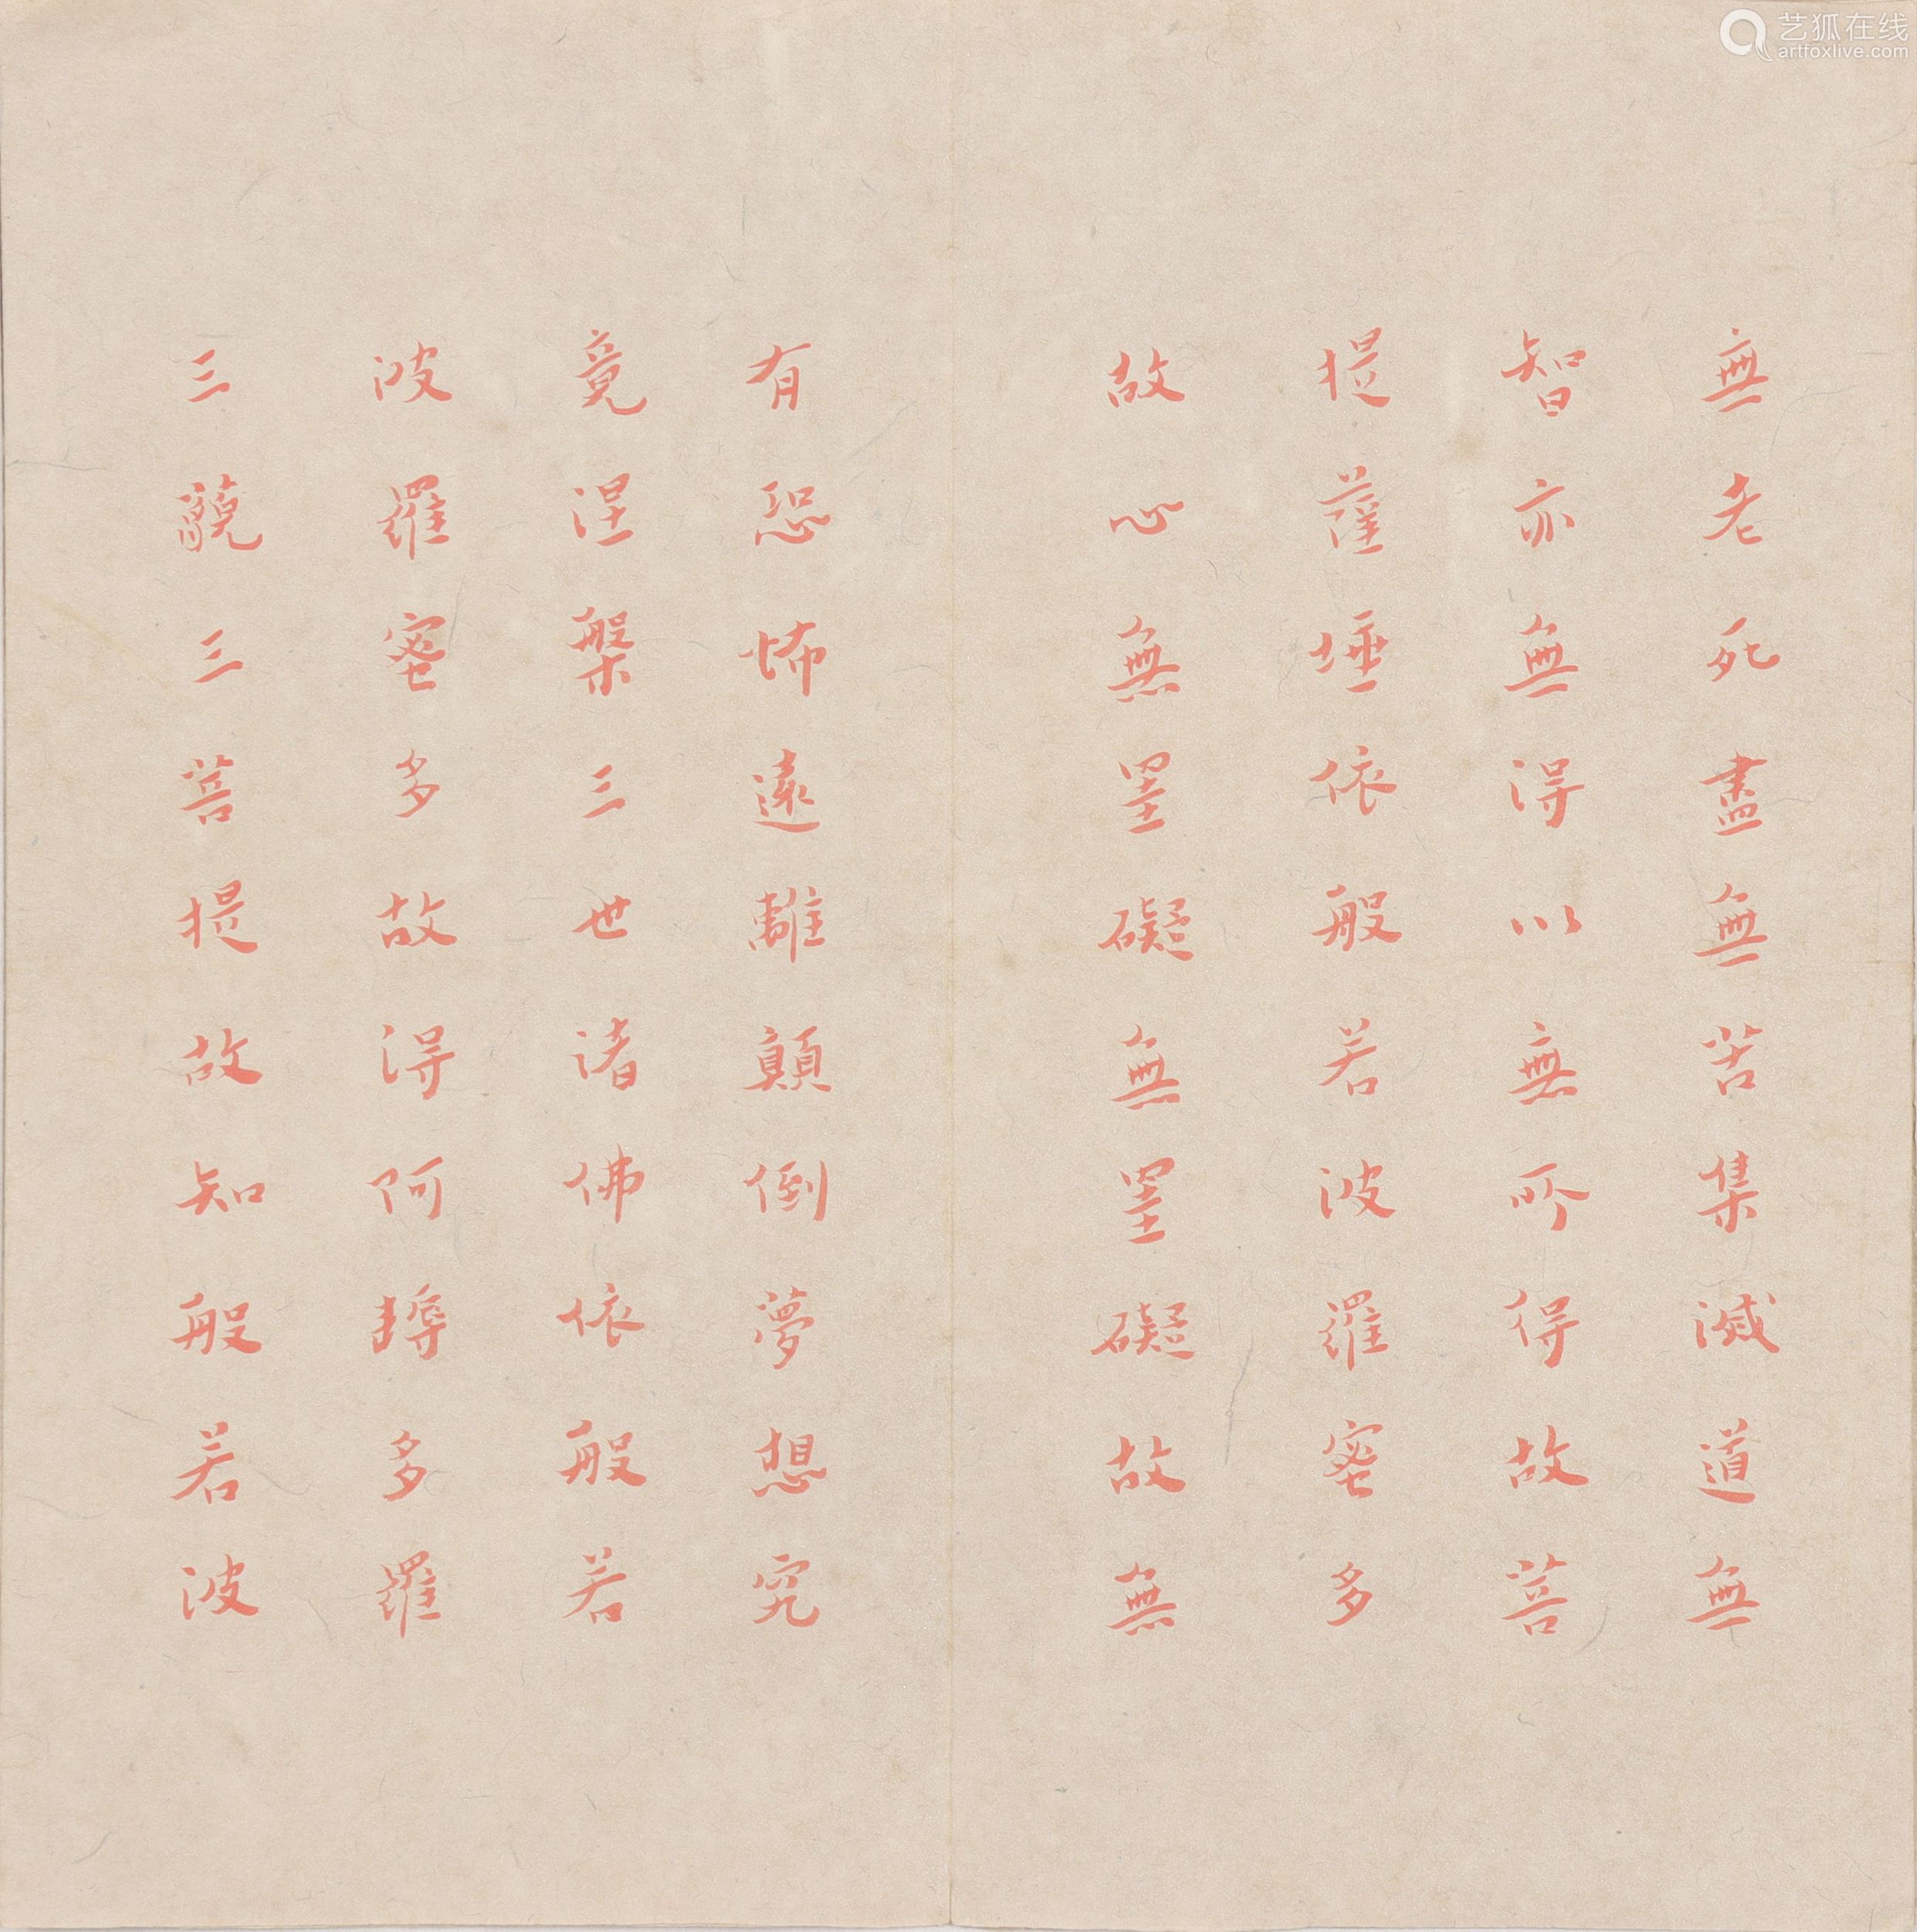 無老死盡無苦集滅道無
智亦無得以無所得故菩
提薩埵依般若波羅蜜多
故心無罣礙無罣礙故無
有恐怖遠離顛倒夢想究
竟涅槃三世諸佛依般若
波羅蜜多故得阿耨多羅
三藐三菩提故知般若波
艺狐在线
artfoxlive.com